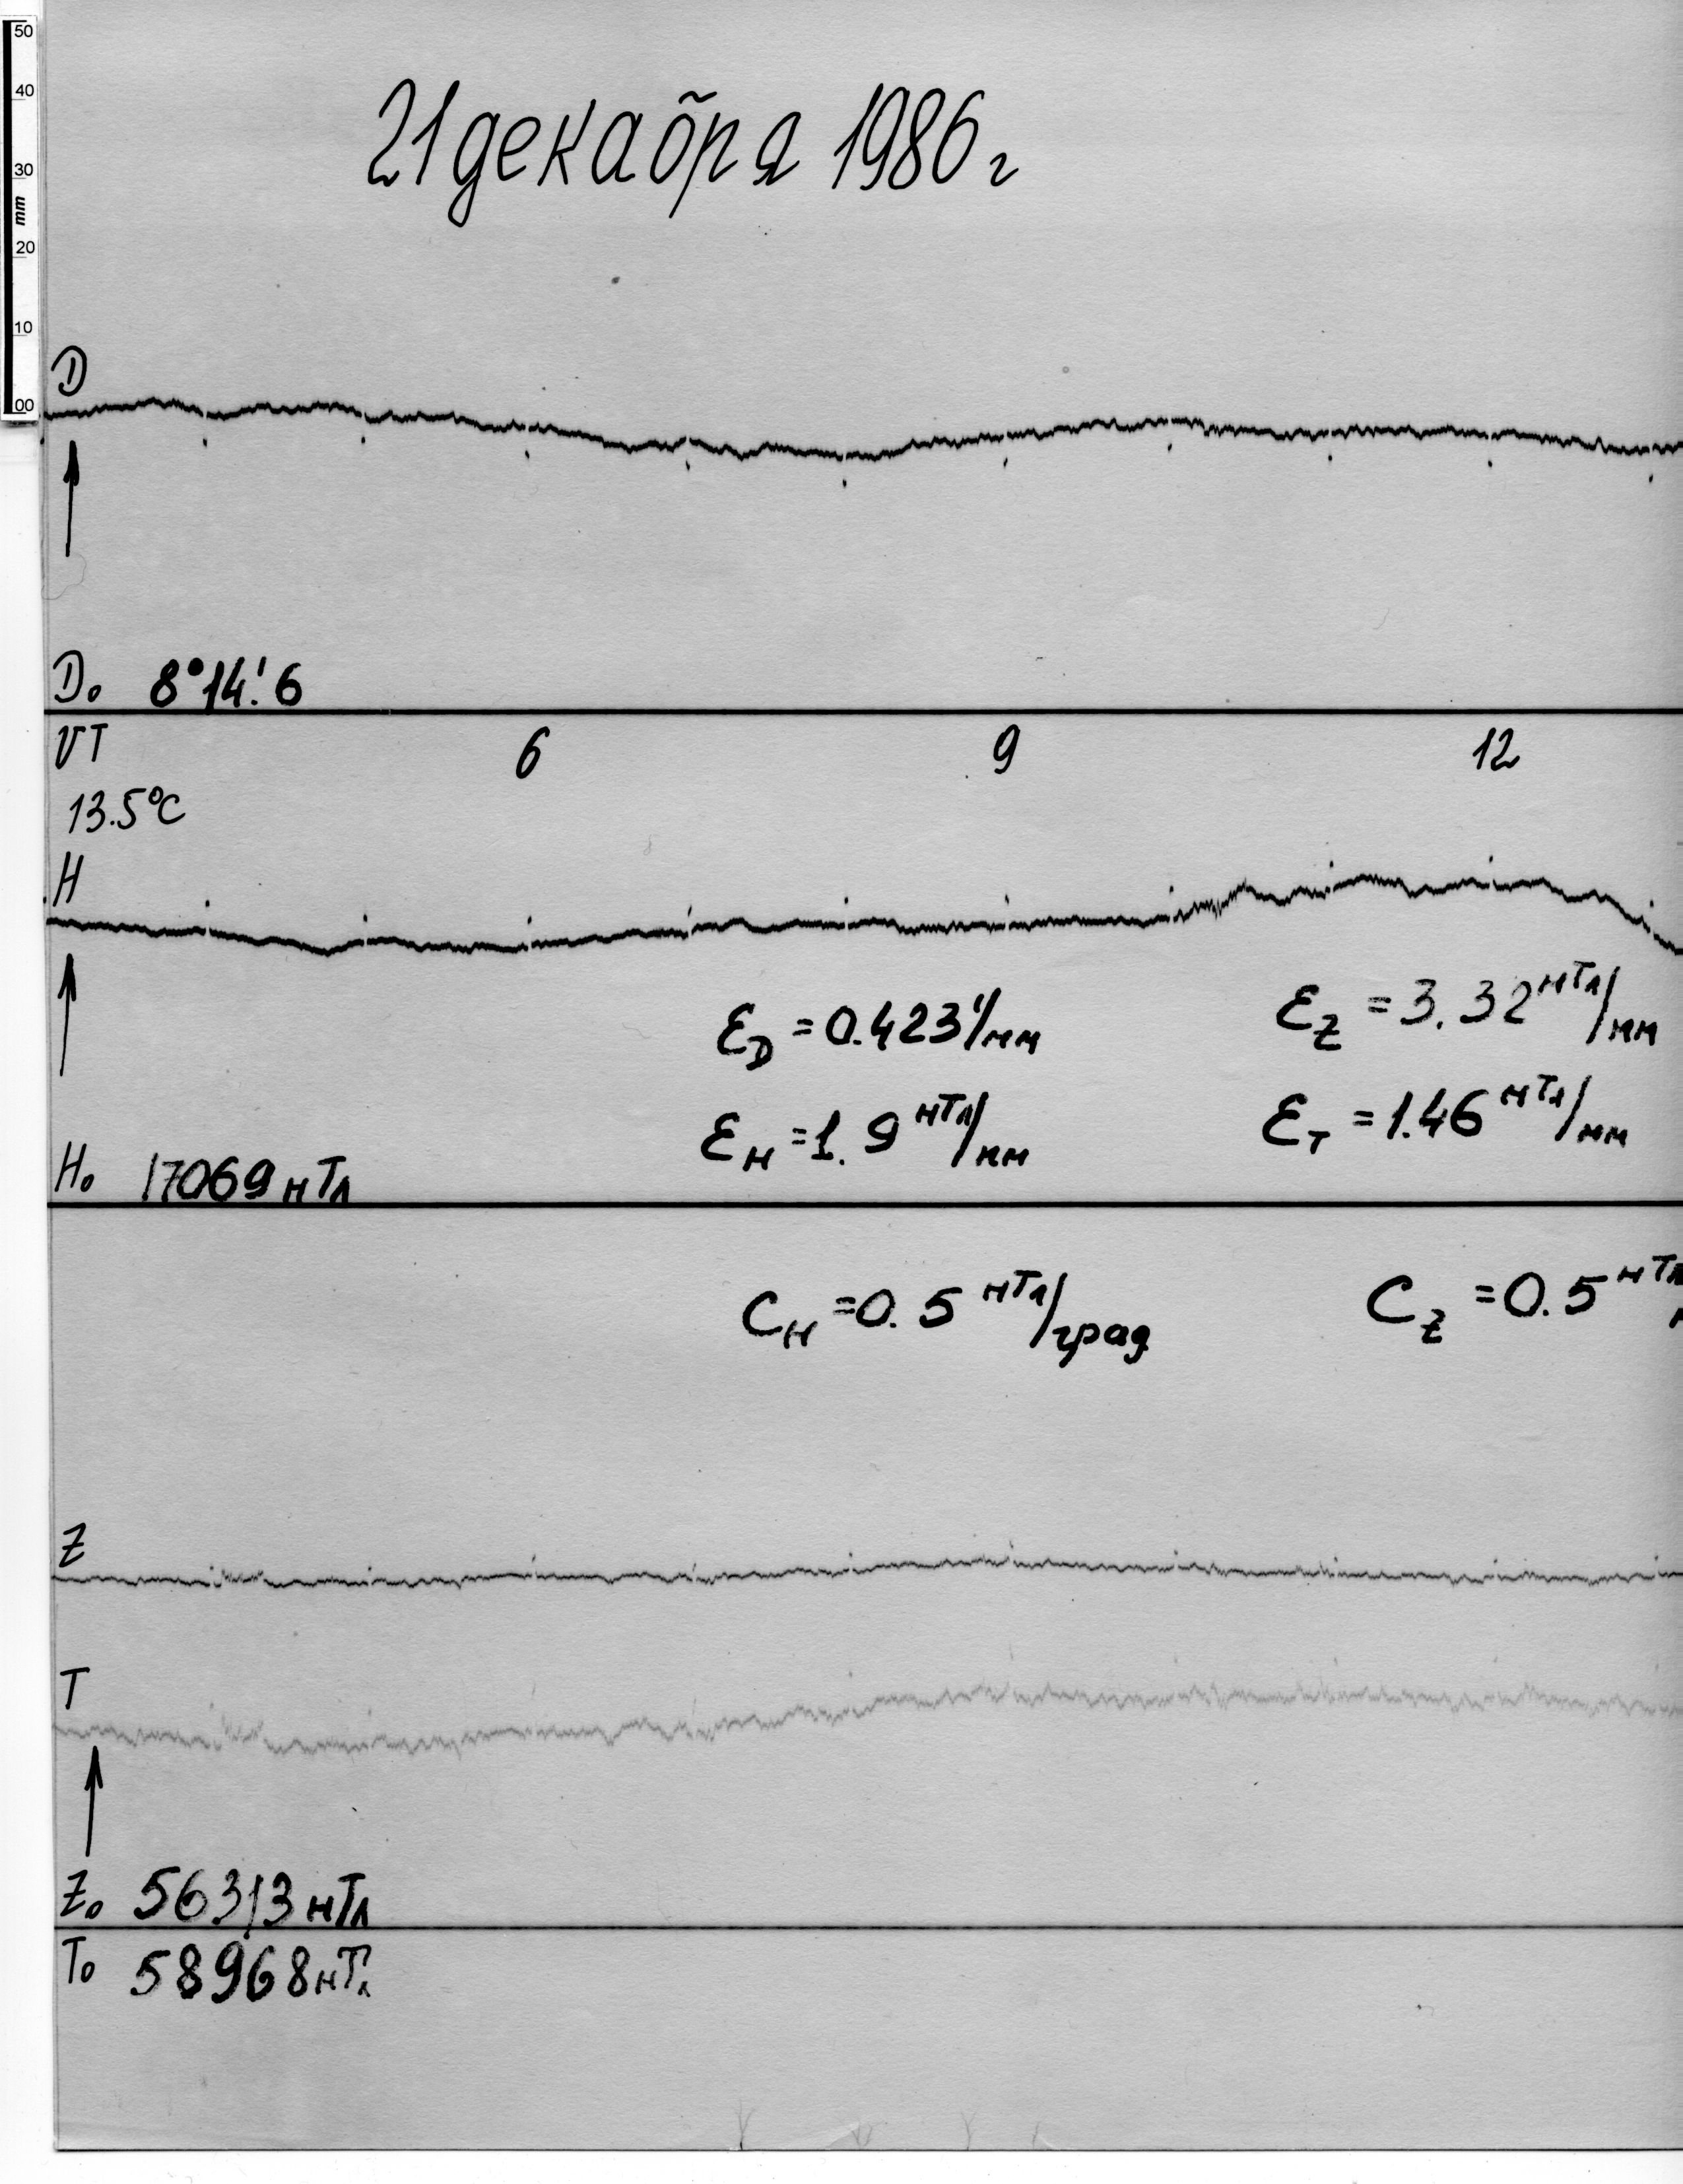 50
40
30
mm
20
10
00
21 декабря 1986 г
D
D₀ 8°14.'6
UT 6 9 12
13.5°C
H
Ɛ_D = 0.423'/мм
Ɛ_Z = 3.32 нТл/мм
Ɛ_H = 1.9 нТл/мм
Ɛ_T = 1.46 нТл/мм
H₀ 17069 нТл
C_H = 0.5 нТл/град
C_Z = 0.5 нТл
Z
T
Z₀ 56313 нТл
T₀ 58968 нТл